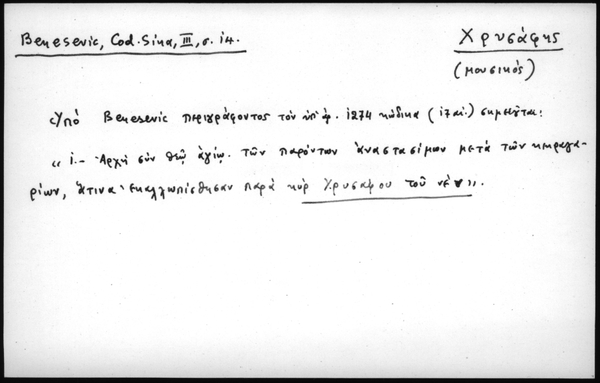 Benesevic, Cod. Sina, III, σ. 14.
Χρυσάφης
(μουσικός)
Ὑπό Benesevic περιγράφοντος τόν ὑπ' ἀρ. 1274 κώδικα (17 αἰ.) σημειοῦται:
„ 1.- Ἀρχή σύν θεῷ ἁγίῳ. τῶν παρόντων ἀναστασίμων μετά τῶν κεκραγα-
ρίων, ἅτινα ἐκαλλωπίσθησαν παρά κύρ Χρυσάφου τοῦ νέου".